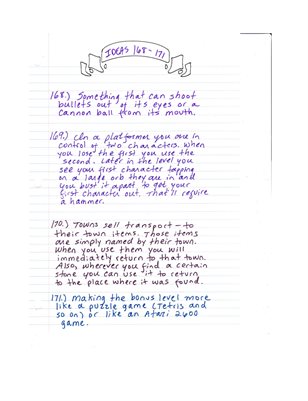 IDEAS 168-171
168.) Something that can shoot
bullets out of its eyes or a
cannon ball from its mouth.
169.) In a platformer you are in
control of two characters. When
you lose the first you use the
second. Later in the level you
see your first character tapping
on a large orb they are in and
you bust it apart to get your
first character out. That'll require
a hammer.
170.) Towns sell transport-to
their town items. Those items
are simply named by their town.
When you use them you will
immediately return to that town.
Also, wherever you find a certain
stone you can use it to return
to the place where it was found.
171.) Making the bonus level more
like a puzzle game (Tetris and
so on) or like an Atari 2600
game.